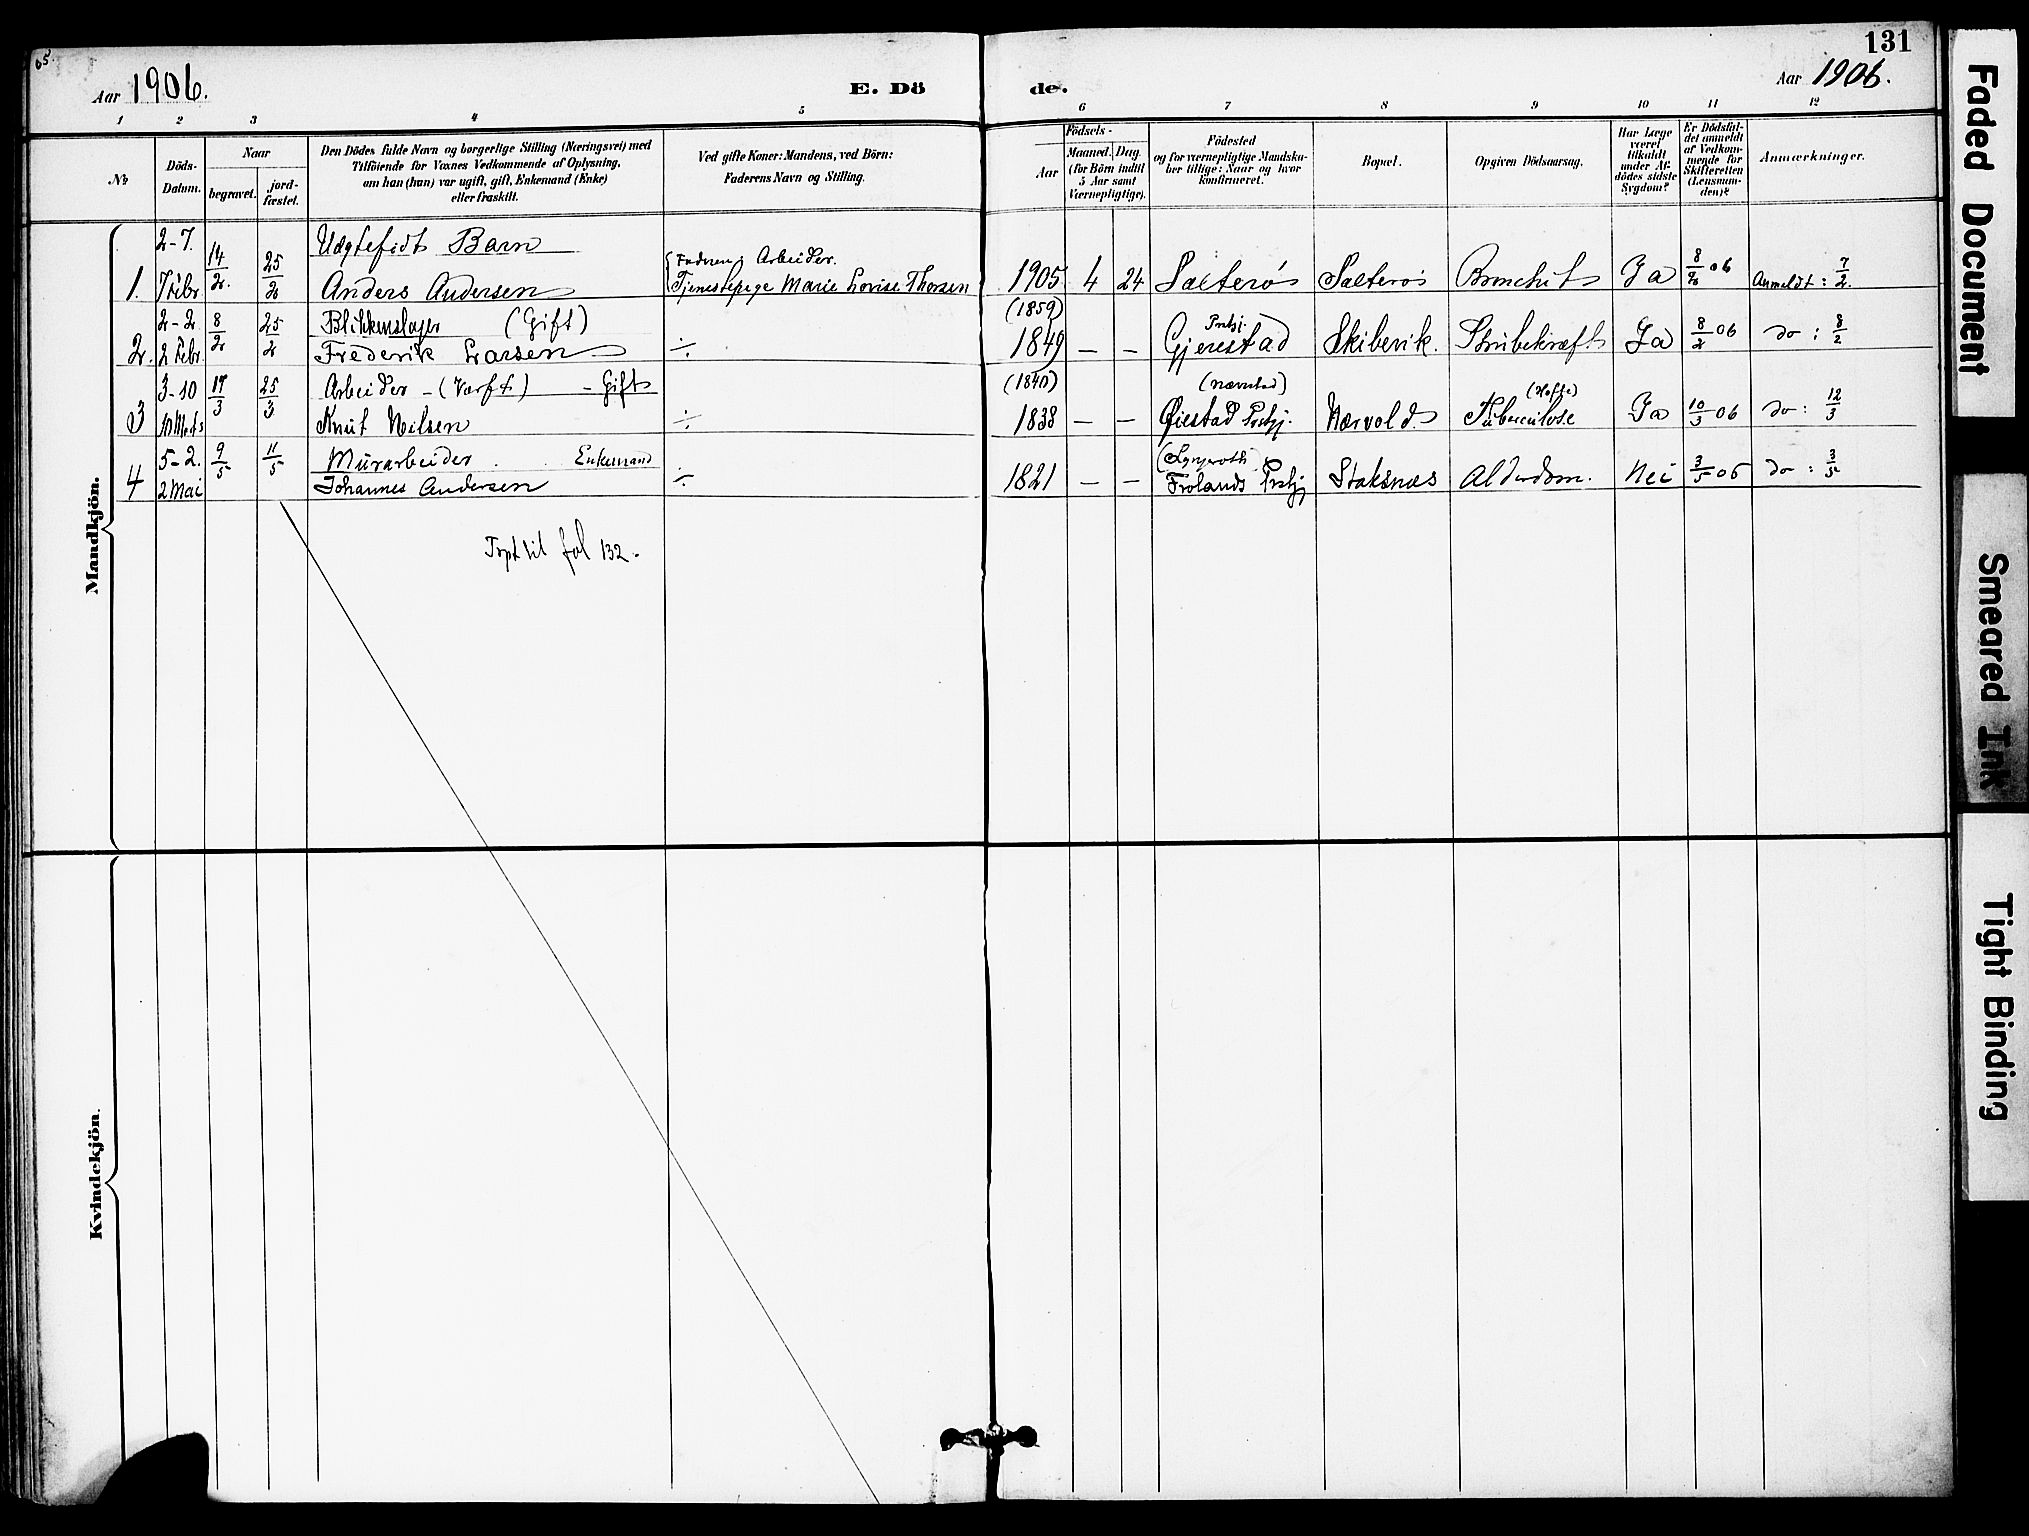 131
Aar 1906.
E. Dö
de.
Aar 1906.
1 2 3 4 5 6 7 8 9 10 11 12
№
Döds-
Datum.
Naar
begravet.
jord-
fæstet.
Den Dödes fulde Navn og borgerlige Stilling (Næringsvei) med
Tilföiende for Voxnes Vedkommende af Oplysning,
om han (hun) var ugift, gift, Enkemand (Enke)
eller fraskilt.
Ved gifte Koner: Mandens, ved Börn:
Faderens Navn og Stilling.
Födsels-
Aar
Maaned. Dag.
(for Börn indtil
5 Aar samt
Værnepligtige).
Födested
og for værnepligtige Mandska-
ber tillige: Naar og hvor
konfirmeret.
Bopæl.
Opgiven Dödsaarsag.
Har Læge
været
tilkaldt
under Af-
dödes sidste
Sygdom?
Er Dödsfal-
det anmeldt
af Vedkom-
mende for
Skifteretten
(Lensman-
den)?
Anmærkninger.
Mandkjön.
2-7. Uægtefödt Barn
Arbeider.
1. 7 Febr 14/2. 25/2 Anders Andersen Tjenestepige Marie Lovise Thorsen 1905 4 24 Salterö Salterö Bronchit Ja 8/2 06 Anmeldt: 7/2.
2-2 Blikkenslager (Gift) (1859) Prstgj.
2. 2 Febr. 8/2 25/2 Frederik Larsen ÷ 1849 — — Gjerestad Skibevik. Strubekræft Ja 8/2 06 do: 8/2
3-10 Arbeider - (Værft) - Gift (1840) (Hofte)
3 10 Marts 17/3 25/3 Knut Nilsen ÷ 1838 — — Öiestad Prstgj. Nærvold Tuberculose Ja 10/3 06 do: 12/3
5-2. Murarbeider. Enkemand
4 2 Mai 9/5 11/5 Johannes Andersen ÷ 1821 — — Frolands Prstgj Staksnæs Alderdom. Nei 3/5 06 do: 3/5
til fol 132.
Kvindekjön.
Faded Document
Smeared Ink
Tight Binding